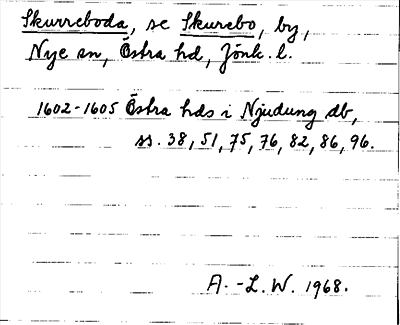 Skurreboda, se Skurebo, by,
Nye sn, Östra hd, Jönk. l.
1602-1605 Östra hds i Njudung db,
ss. 38, 51, 75, 76, 82, 86, 96.
A.-L. W. 1968.